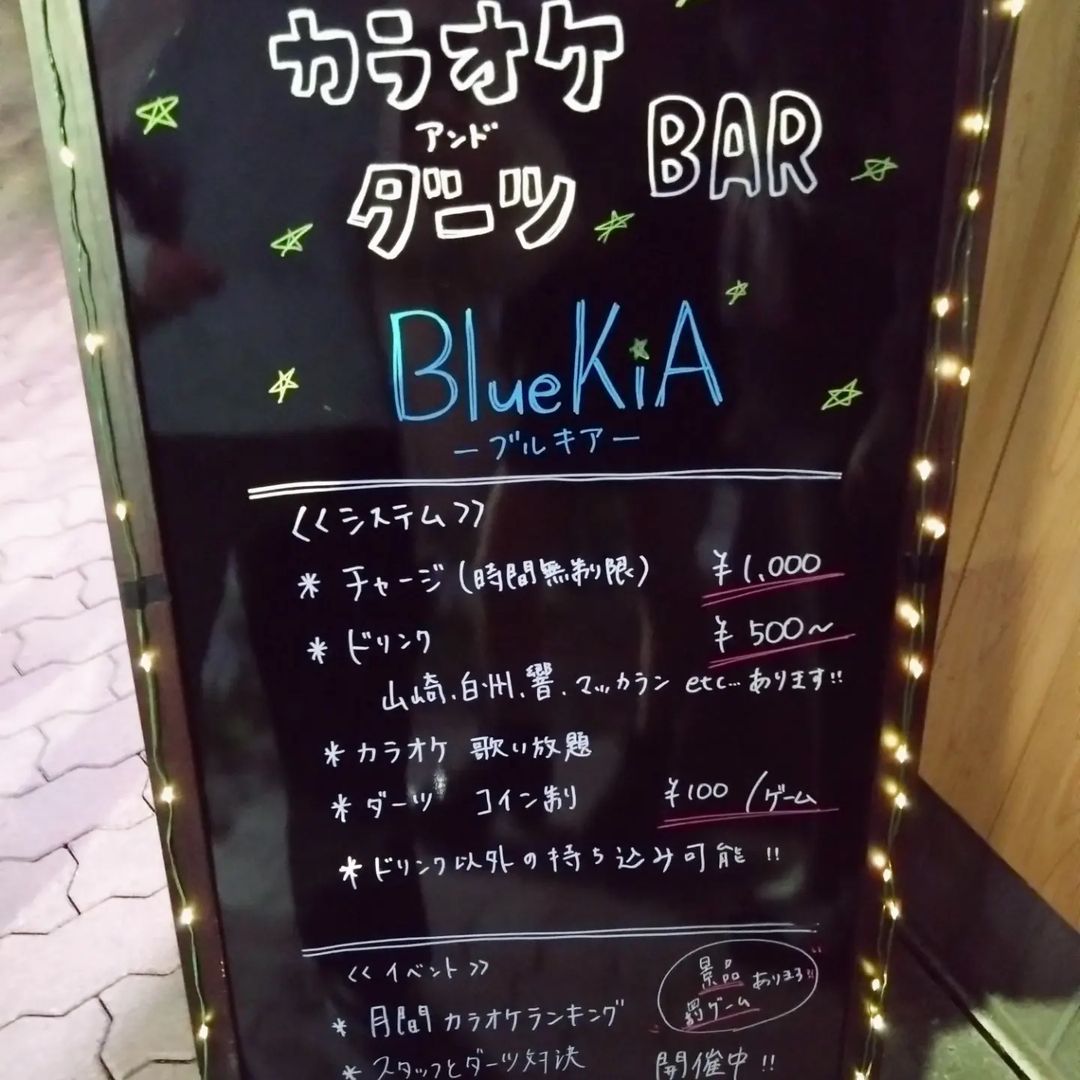 カラオケ
アンド
ダーツ BAR
BlueKiA
ーブルキアー
<<システム>>
* チャージ(時間無制限) ¥1,000
* ドリンク ¥500~
山崎、白州、響、マッカラン etc…あります!!
* カラオケ 歌い放題
* ダーツ コイン制 ¥100/ゲーム
* ドリンク以外の持ち込み可能!!
<<イベント>>
景品
罰ゲーム あります!!
* 月間カラオケランキング
* スタッフとダーツ対決 開催中!!